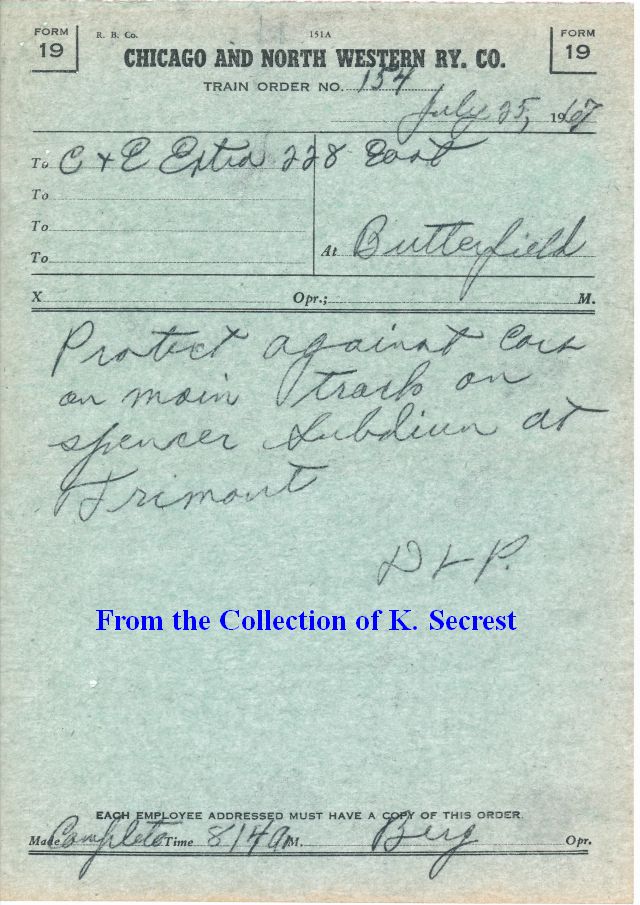 FORM 19
R. B. Co.
151A
FORM 19
CHICAGO AND NORTH WESTERN RY. CO.
TRAIN ORDER NO. 154
July 25, 1967
To C & E Extra 228 East
To
To
To
At Butterfield
X Opr.; M.
Protect against Cars
on main track on
spencer Subdivn at
Trimont
D L P.
From the Collection of K. Secrest
EACH EMPLOYEE ADDRESSED MUST HAVE A COPY OF THIS ORDER.
Made Complete Time 814 a M. Berg Opr.